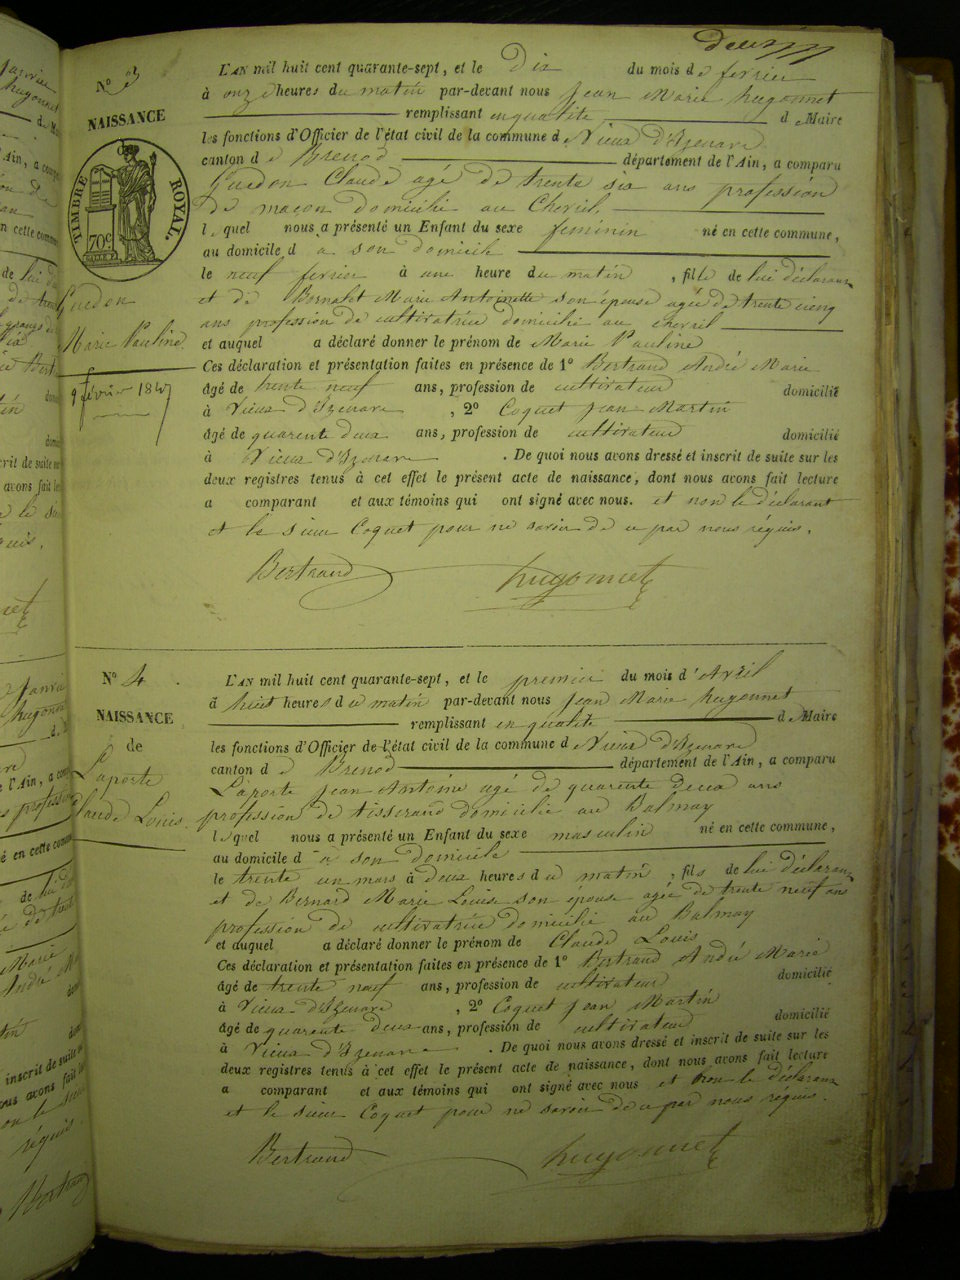 deux
N° 3
NAISSANCE
TIMBRE ROYAL.
70c
Guedon
Marie Pauline
9 février 1847
L'AN mil huit cent quarante-sept, et le dix du mois de fevrier
à onze heures du matin par-devant nous Jean Marie hugonnet
remplissant en qualité de Maire
les fonctions d'Officier de l'état civil de la commune de Vieux d'Izenave
canton de Brenod département de l'Ain, a comparu
Guedon Claude agé de trente six ans profession
de maçon domicilié au Chevril,
lequel nous a présenté un Enfant du sexe féminin né en cette commune,
au domicile d à son domicile
le neuf fevrier à une heure du matin, fille de lui déclarant
et de Marie Antoinette son épouse agée de trente cinq
ans profession de cultivatrice domicilié au chevril
et auquel a déclaré donner le prénom de Marie Pauline
Ces déclaration et présentation faites en présence de 1° Bertrand André Marie
âgé de trente neuf ans, profession de cultivateur domicilié
à Vieux d'Izenave, 2° Coquet Jean Martin
âgé de quarente deux ans, profession de cultivateur domicilié
à Vieux d'Izenave. De quoi nous avons dressé et inscrit de suite sur les
deux registres tenus à cet effet le présent acte de naissance, dont nous avons fait lecture
a comparant et aux témoins qui ont signé avec nous. et non le déclarant
et le sieur Coquet pour ne savoir de ce par nous réquis.
Bertrand hugonnet
N° 4
NAISSANCE
de
Laporte
Claude Louis.
L'AN mil huit cent quarante-sept, et le premier du mois d'Avril
à huit heures du matin par-devant nous Jean Marie hugonnet
remplissant en qualité de Maire
les fonctions d'Officier de l'état civil de la commune de Vieux d'Izenave
canton de Brenod département de l'Ain, a comparu
Laporte Jean Antoine agé de quarente deux ans
profession de tisserand domicilié au Balmay
lequel nous a présenté un Enfant du sexe masculin né en cette commune,
au domicile d à son domicile
le trente un mars à deux heures du matin, fils de lui déclarant
et de Bernard Marie Louise son épouse agée de trente neuf ans
profession de cultivatrice domicilié au Balmay
et auquel a déclaré donner le prénom de Claude Louis
Ces déclaration et présentation faites en présence de 1° Bertrand André Marie
âgé de trente neuf ans, profession de cultivateur domicilié
à Vieux d'Izenave, 2° Coquet Jean Martin
âgé de quarente deux ans, profession de cultivateur domicilié
à Vieux d'Izenave. De quoi nous avons dressé et inscrit de suite sur les
deux registres tenus à cet effet le présent acte de naissance, dont nous avons fait lecture
a comparant et aux témoins qui ont signé avec nous et non le déclarant
et le sieur Coquet pour ne savoir de ce par nous réquis.
Bertrand hugonnet